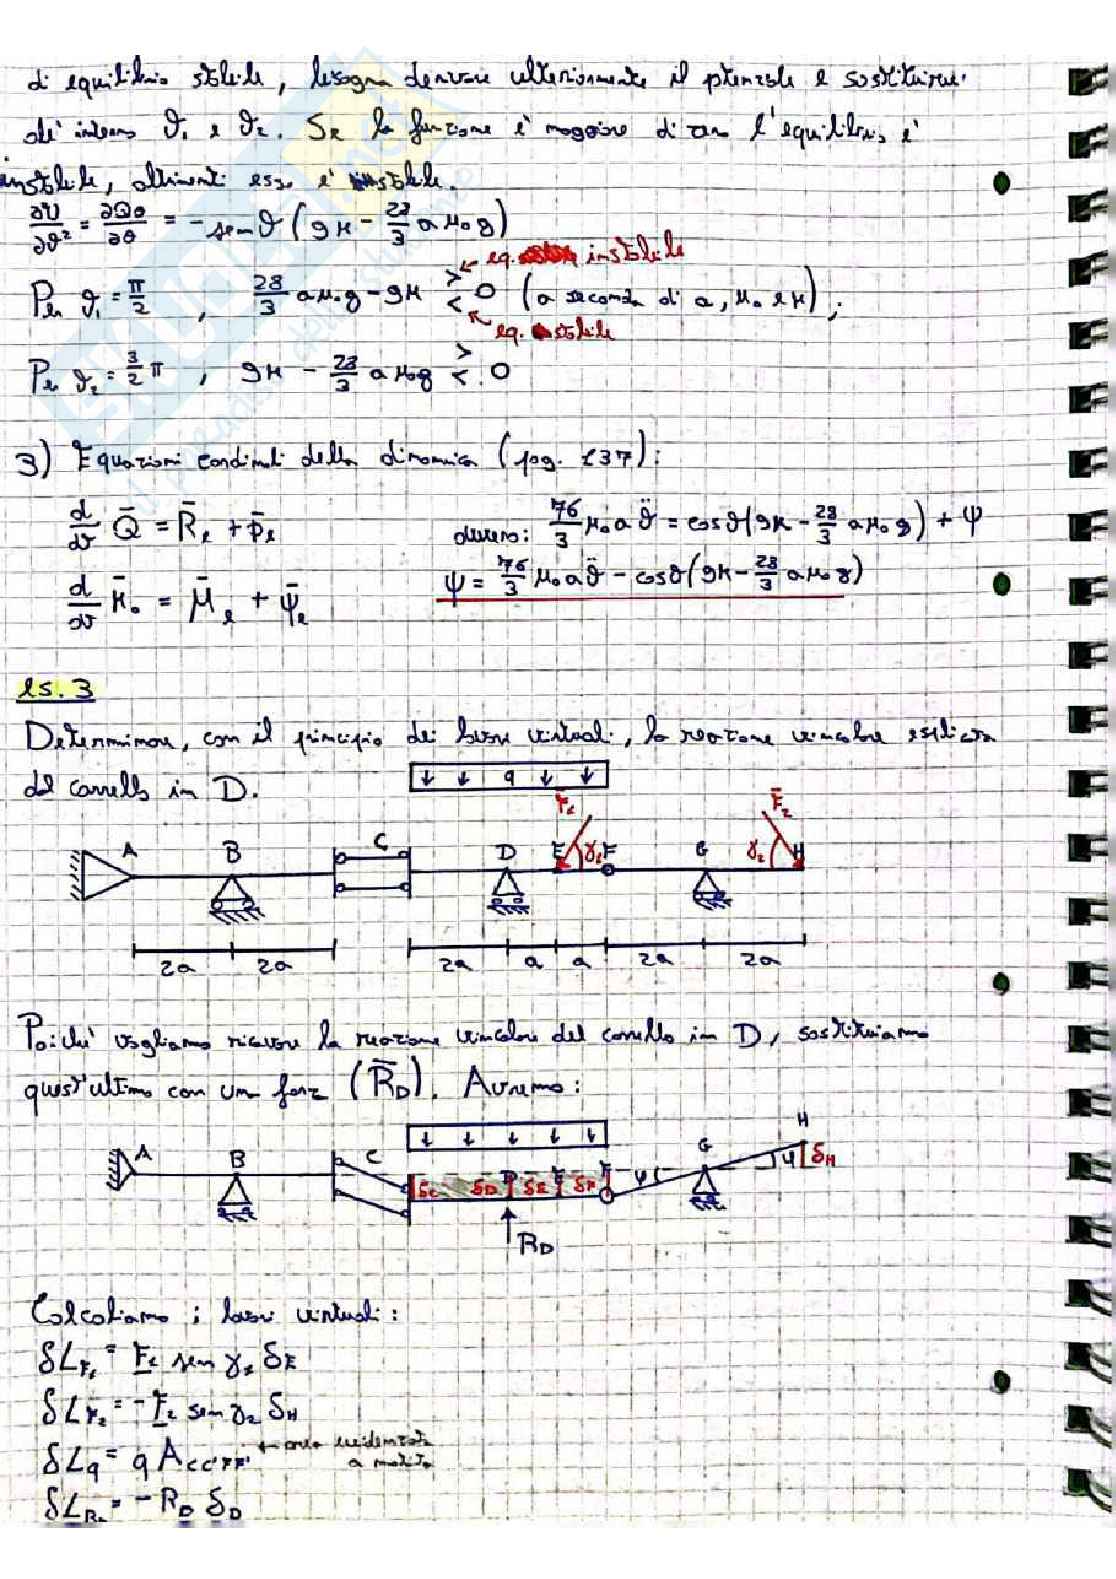 di equilibrio stabile, bisogna derivare ulteriormente il potenziale e sostituirvi
all'interno ϑ₁ e ϑ₂. Se la funzione è maggiore di zero l'equilibrio è
instabile, altrimenti esso è stabile.
∂²U/∂ϑ² = ∂Qϑ/∂ϑ = -sen ϑ (9k - 28/3 a μ₀ g)
eq. instabile
Per ϑ₁ = π/2 , 28/3 a μ₀ g - 9k >< 0 (a seconda di a, μ₀ e k);
eq. stabile
Per ϑ₂ = 3/2 π , 9k - 28/3 a μ₀ g >< 0
3) Equazioni cardinali della dinamica (pag. 137):
d/dt Q̄ = R̄e + φ̄e
ovvero: 76/3 μ₀ a ϑ̈ = cos ϑ (9k - 28/3 a μ₀ g) + ψ
d/dt K̄₀ = M̄e + ψ̄e
ψ = 76/3 μ₀ a ϑ̈ - cos ϑ (9k - 28/3 a μ₀ g)
es. 3
Determinare, con il principio dei lavori virtuali, la reazione vincolare esplicata
dal carrello in D.
q
A B C D E F₁ γ₁ F G F̄₂ γ₂ H
2a 2a 2a a a 2a 2a
Poiché vogliamo ricavare la reazione vincolare del carrello in D, sostituiamo
quest'ultimo con una forza (R̄D). Avremo:
A B C D E F G H
δC δD δE δF ψ ψ δH
RD
Calcoliamo i lavori virtuali:
δLF₁ = F₁ sen γ₁ δE
δLF₂ = -F₂ sen γ₂ δH
δLq = q ACC'FF' ← area evidenziata
a matita
δLRD = -RD δD